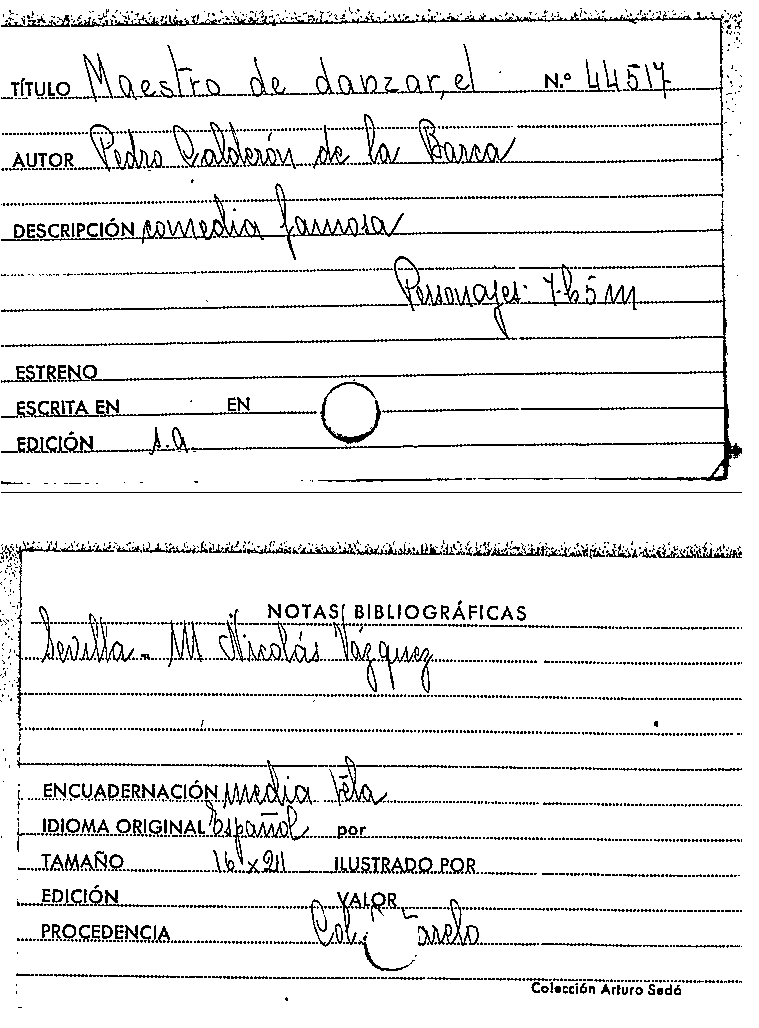 TÍTULO Maestro de danzar, el N.º 44517
AUTOR Pedro Calderón de la Barca
DESCRIPCIÓN comedia famosa
Personajes: 7h 5m
ESTRENO
ESCRITA EN EN
EDICIÓN s.a.
NOTAS BIBLIOGRÁFICAS
Sevilla - M Nicolás Vázquez
ENCUADERNACIÓN media tela
IDIOMA ORIGINAL Español por
TAMAÑO 16 x 211 ILUSTRADO POR
EDICIÓN VALOR
PROCEDENCIA Col. 
Colección Arturo Sedó